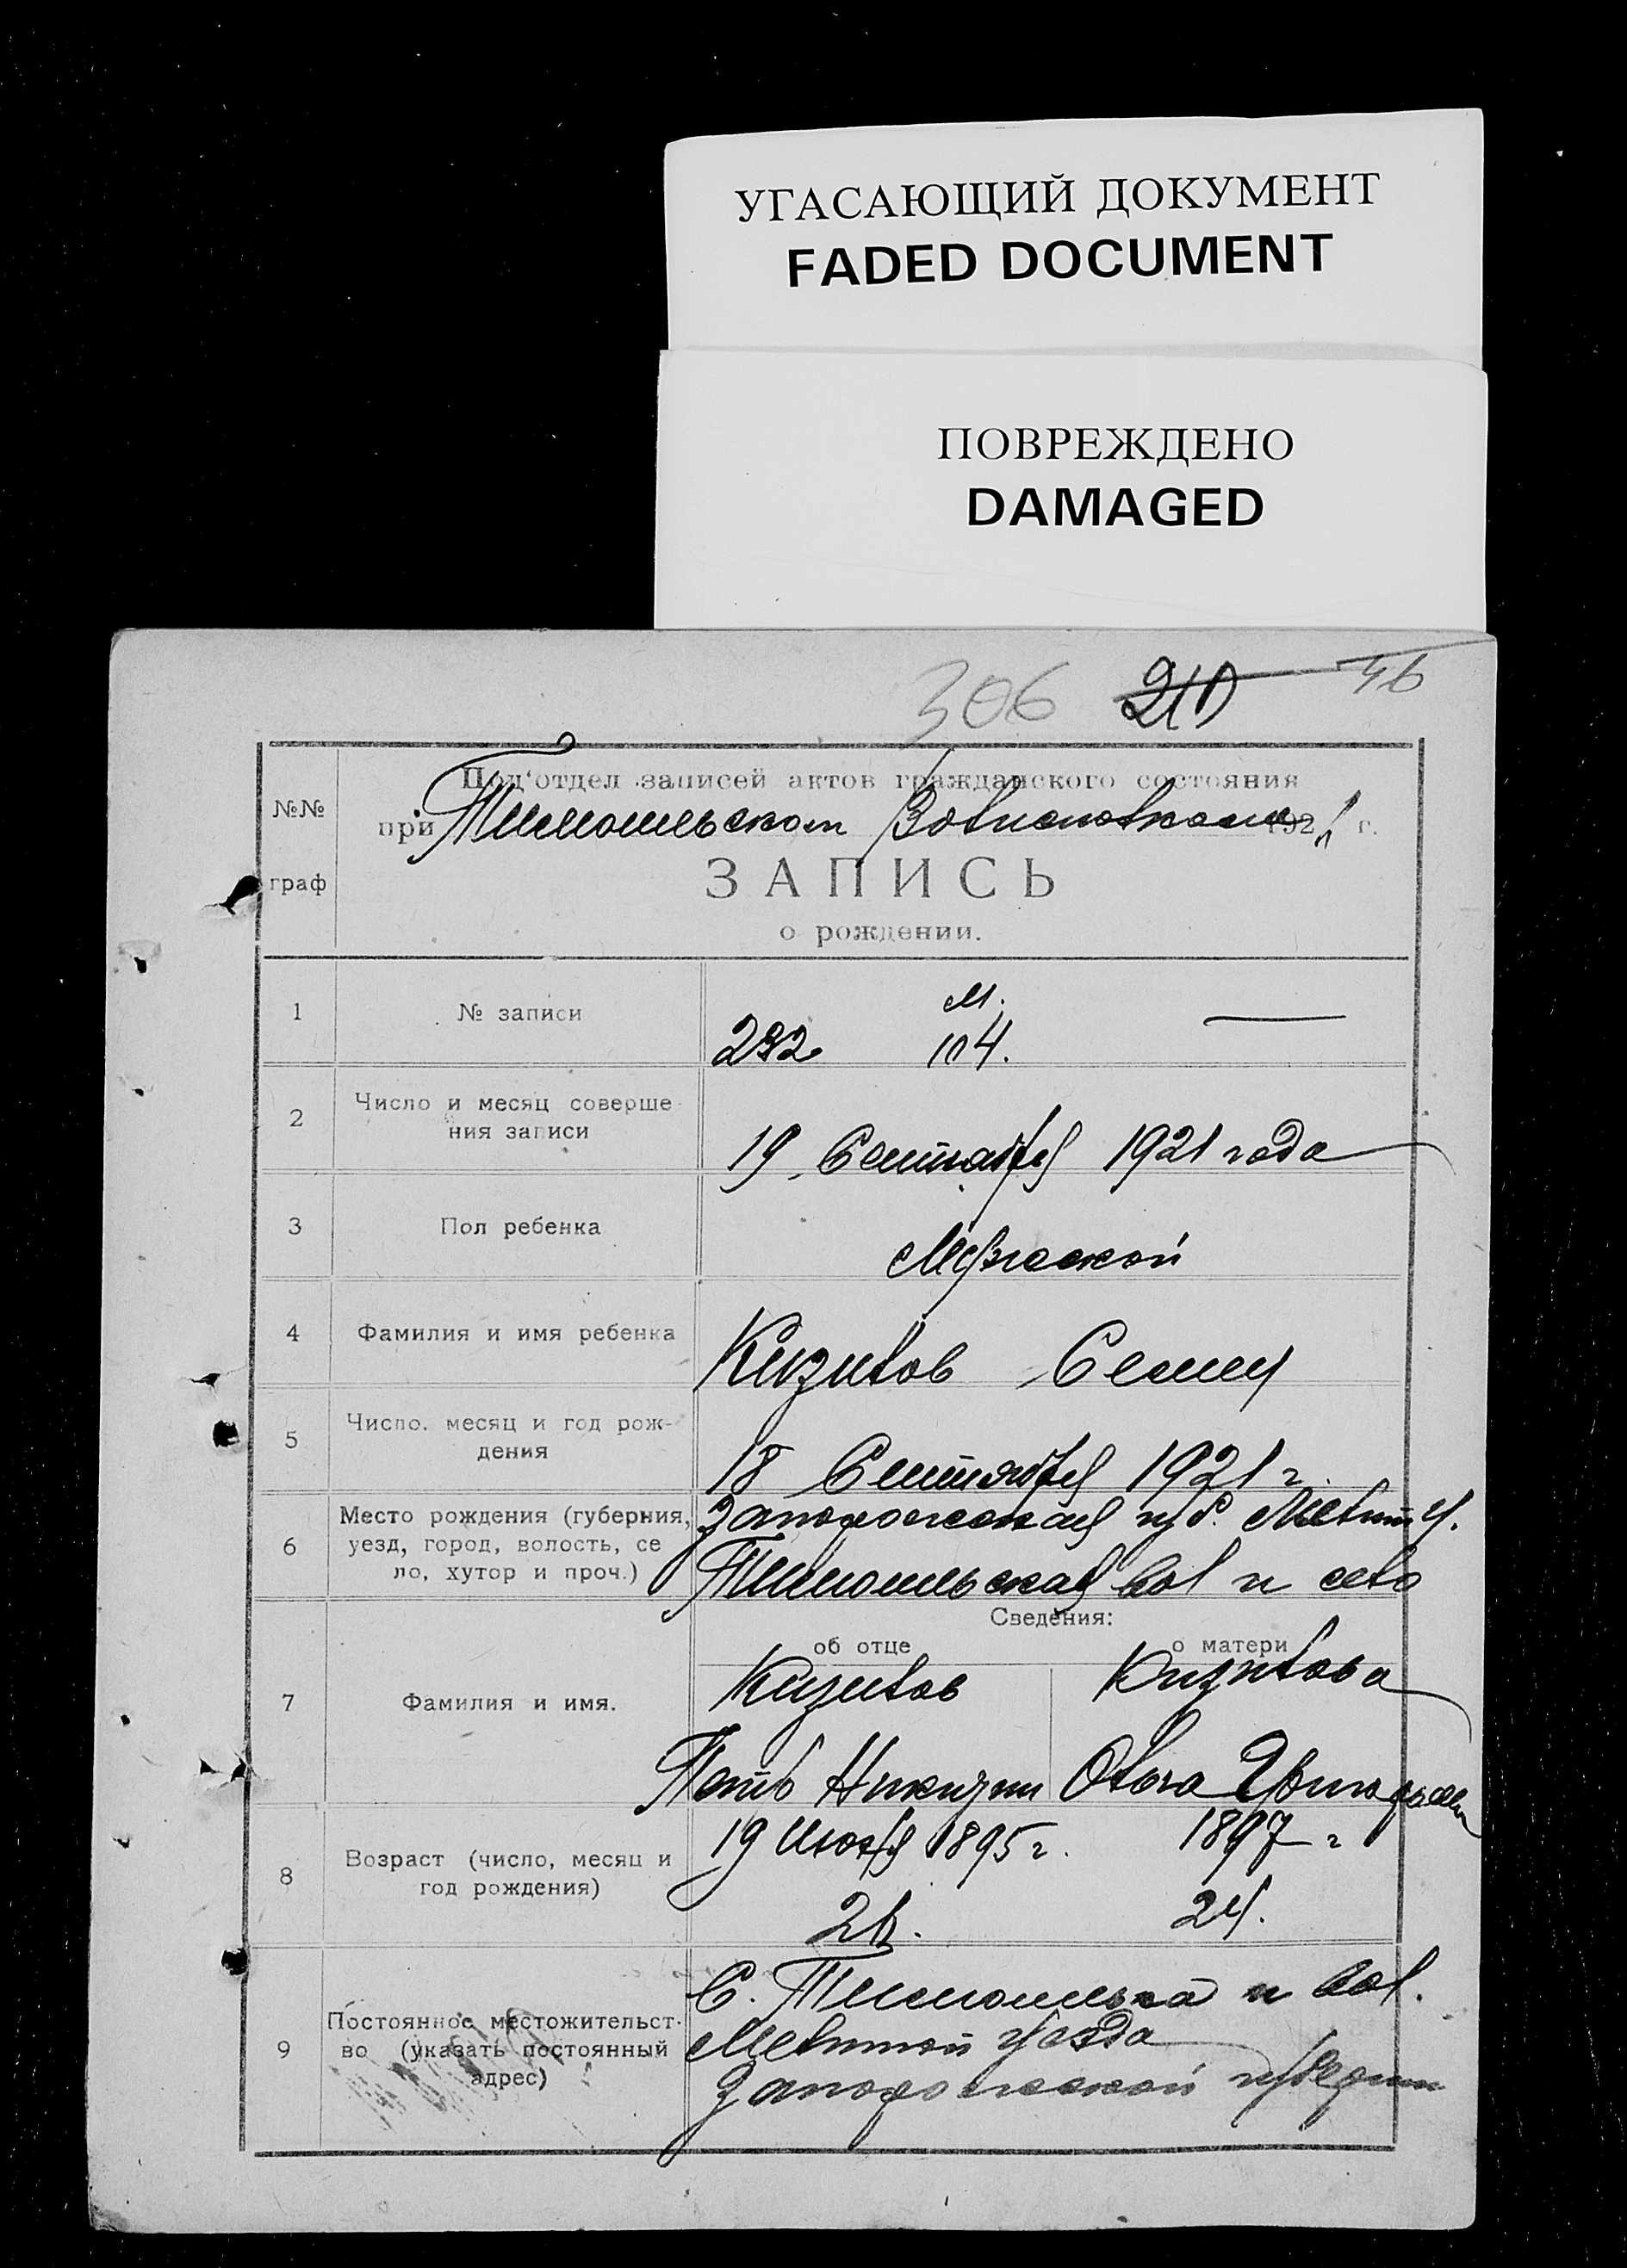 УГАСАЮЩИЙ ДОКУМЕНТ
FADED DOCUMENT
ПОВРЕЖДЕНО
DAMAGED
306 210 46
№№ граф
Под'отдел записей актов гражданского состояния
при Тимошевском Волисполкоме 1921 г.
ЗАПИСЬ
о рождении.
1 № записи
м.
292 104.
2 Число и месяц соверше-
ния записи
19 Сентября 1921 года
3 Пол ребенка
Мужской
4 Фамилия и имя ребенка
Кизилов Семен
5 Число, месяц и год рож-
дения
18 Сентября 1921 г.
6 Место рождения (губерния,
уезд, город, волость, се
ло, хутор и проч.)
Запорожская губ. Мелит у.
вол и село
Сведения:
об отце о матери
7 Фамилия и имя.
Кизилов Кизилова
Петр Ольга
8 Возраст (число, месяц и
год рождения)
19 1895 г. 1897 г
26. 24.
9 Постоянное местожительст-
во (указать постоянный
адрес)
С. и вол.
Мелитой уезда
Запорожской губернии